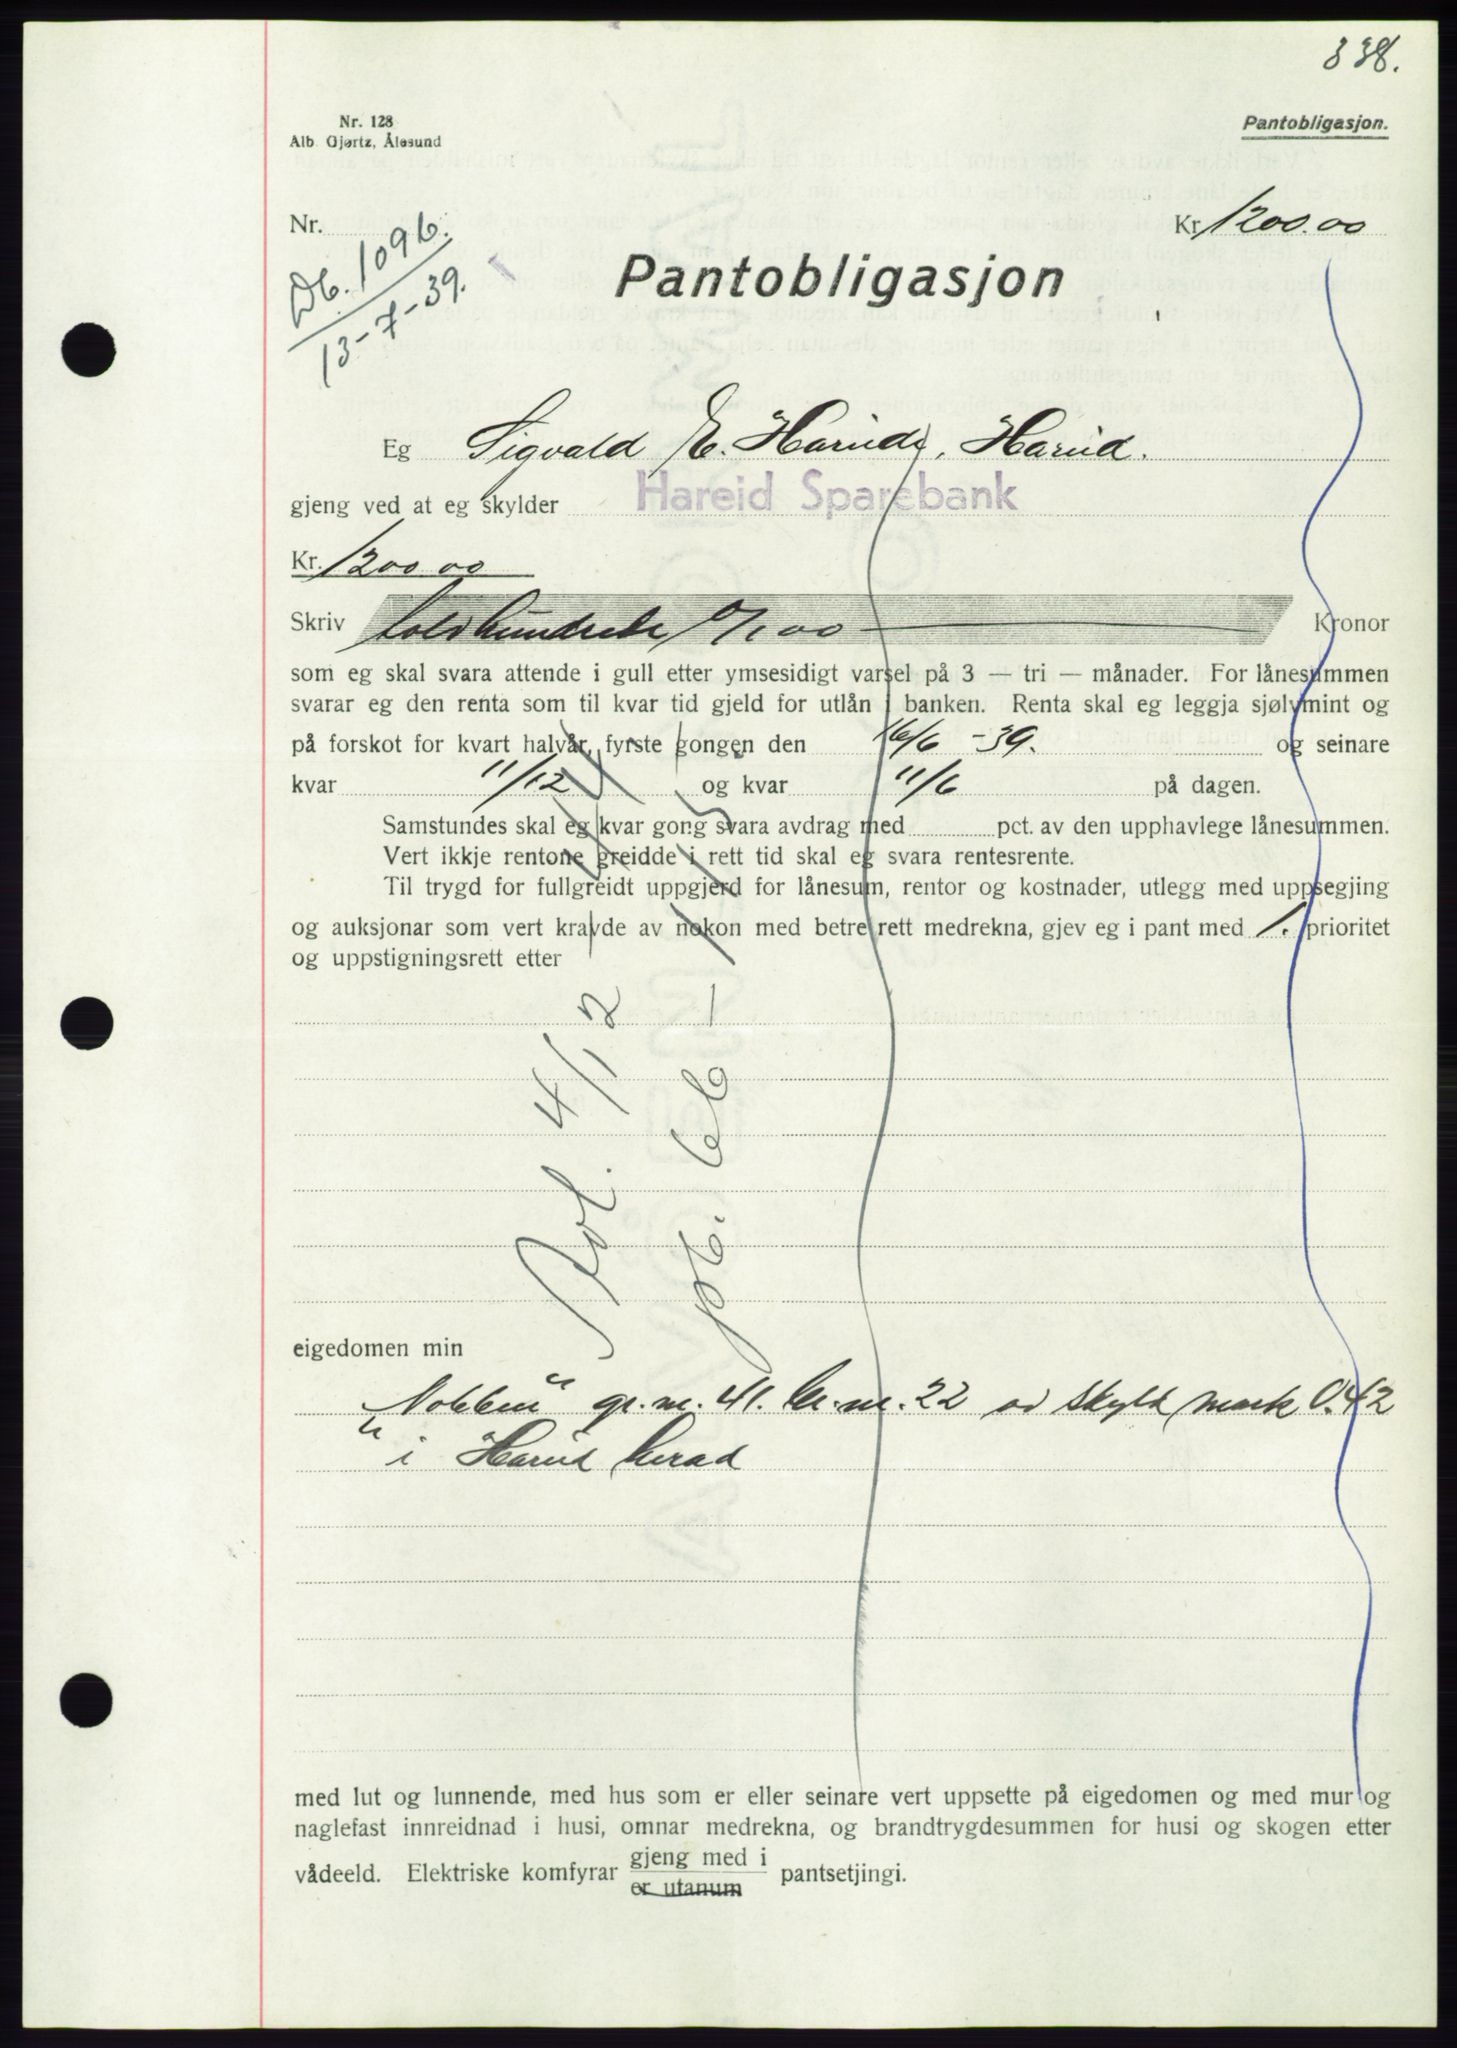 338.
Nr. 128
Alb. Gjørtz, Ålesund
Pantobligasjon.
Nr.
Kr. 1200.00
Db. 1096.
13-7-39.
Pantobligasjon
Eg Sigvald E. Hareide, Hareid.
gjeng ved at eg skylder Hareid Sparebank
Kr. 1200 00
Skriv tolvhundrede 0/100 Kronor
som eg skal svara attende i gull etter ymsesidigt varsel på 3 — tri — månader. For lånesummen
svarar eg den renta som til kvar tid gjeld for utlån i banken. Renta skal eg leggja sjølvmint og
på forskot for kvart halvår, fyrste gongen den 16/6 -39. og seinare
kvar 11/12 og kvar 11/6 på dagen.
Samstundes skal eg kvar gong svara avdrag med pct. av den upphavlege lånesummen.
Vert ikkje rentone greidde i rett tid skal eg svara rentesrente.
Til trygd for fullgreidt uppgjerd for lånesum, rentor og kostnader, utlegg med uppsegjing
og auksjonar som vert kravde av nokon med betre rett medrekna, gjev eg i pant med 1. prioritet
og uppstigningsrett etter
4/12 44
eigedomen min
"Nobben" gr. nr. 41. br. nr. 22 av skyld mark 0.42
i Hareid herad
med lut og lunnende, med hus som er eller seinare vert uppsette på eigedomen og med mur og
naglefast innreidnad i husi, omnar medrekna, og brandtrygdesummen for husi og skogen etter
vådeeld. Elektriske komfyrar gjeng med i pantsetjingi.
er utanum